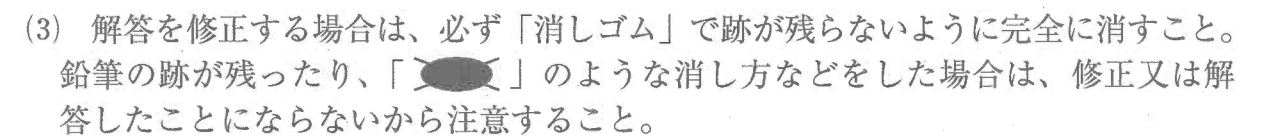 (3) 解答を修正する場合は、必ず「消しゴム」で跡が残らないように完全に消すこと。
鉛筆の跡が残ったり、「 」のような消し方などをした場合は、修正又は解
答したことにならないから注意すること。